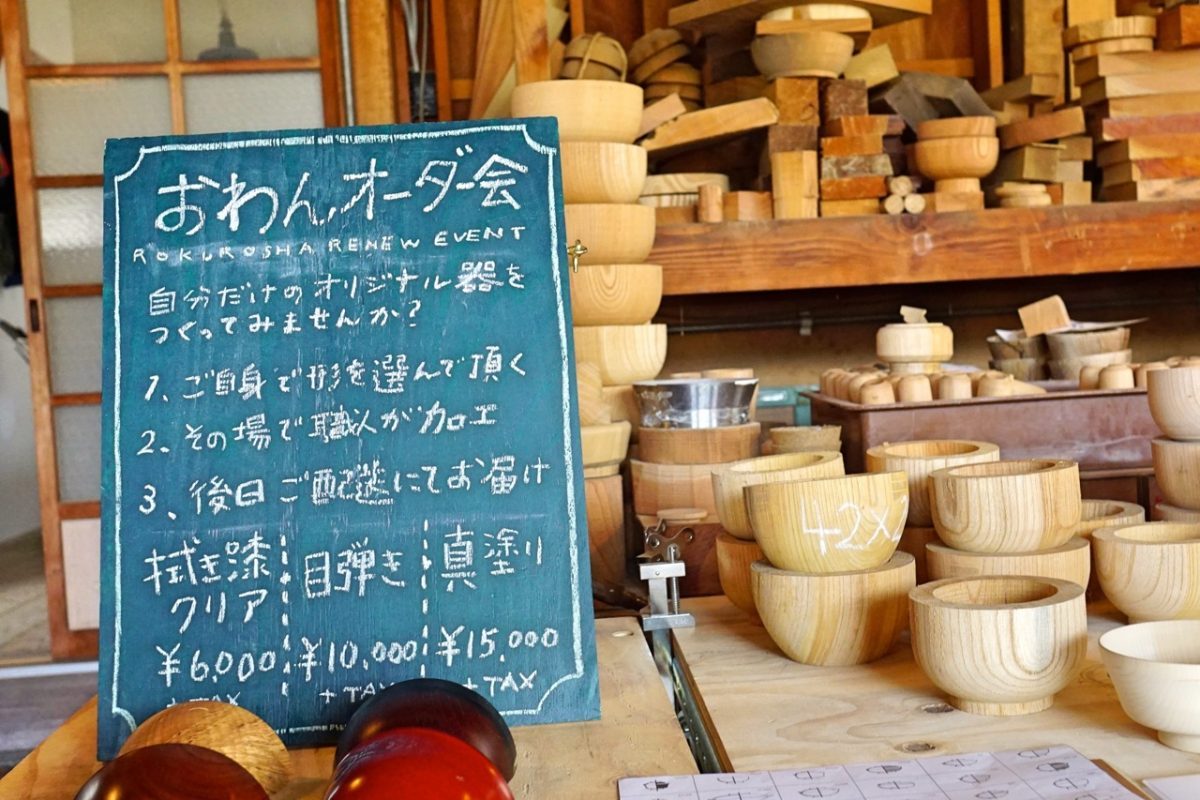 おわん、オーダー会
ROKUROSHA RENEW EVENT
自分だけのオリジナル器を
つくってみませんか?
1、ご自身で形を選んで頂く
2、その場で職人が加工
3、後日ご配送にてお届け
拭き漆
クリア
¥6,000
+TAX
目弾き
¥10,000
+TAX
真塗り
¥15,000
+TAX
42X